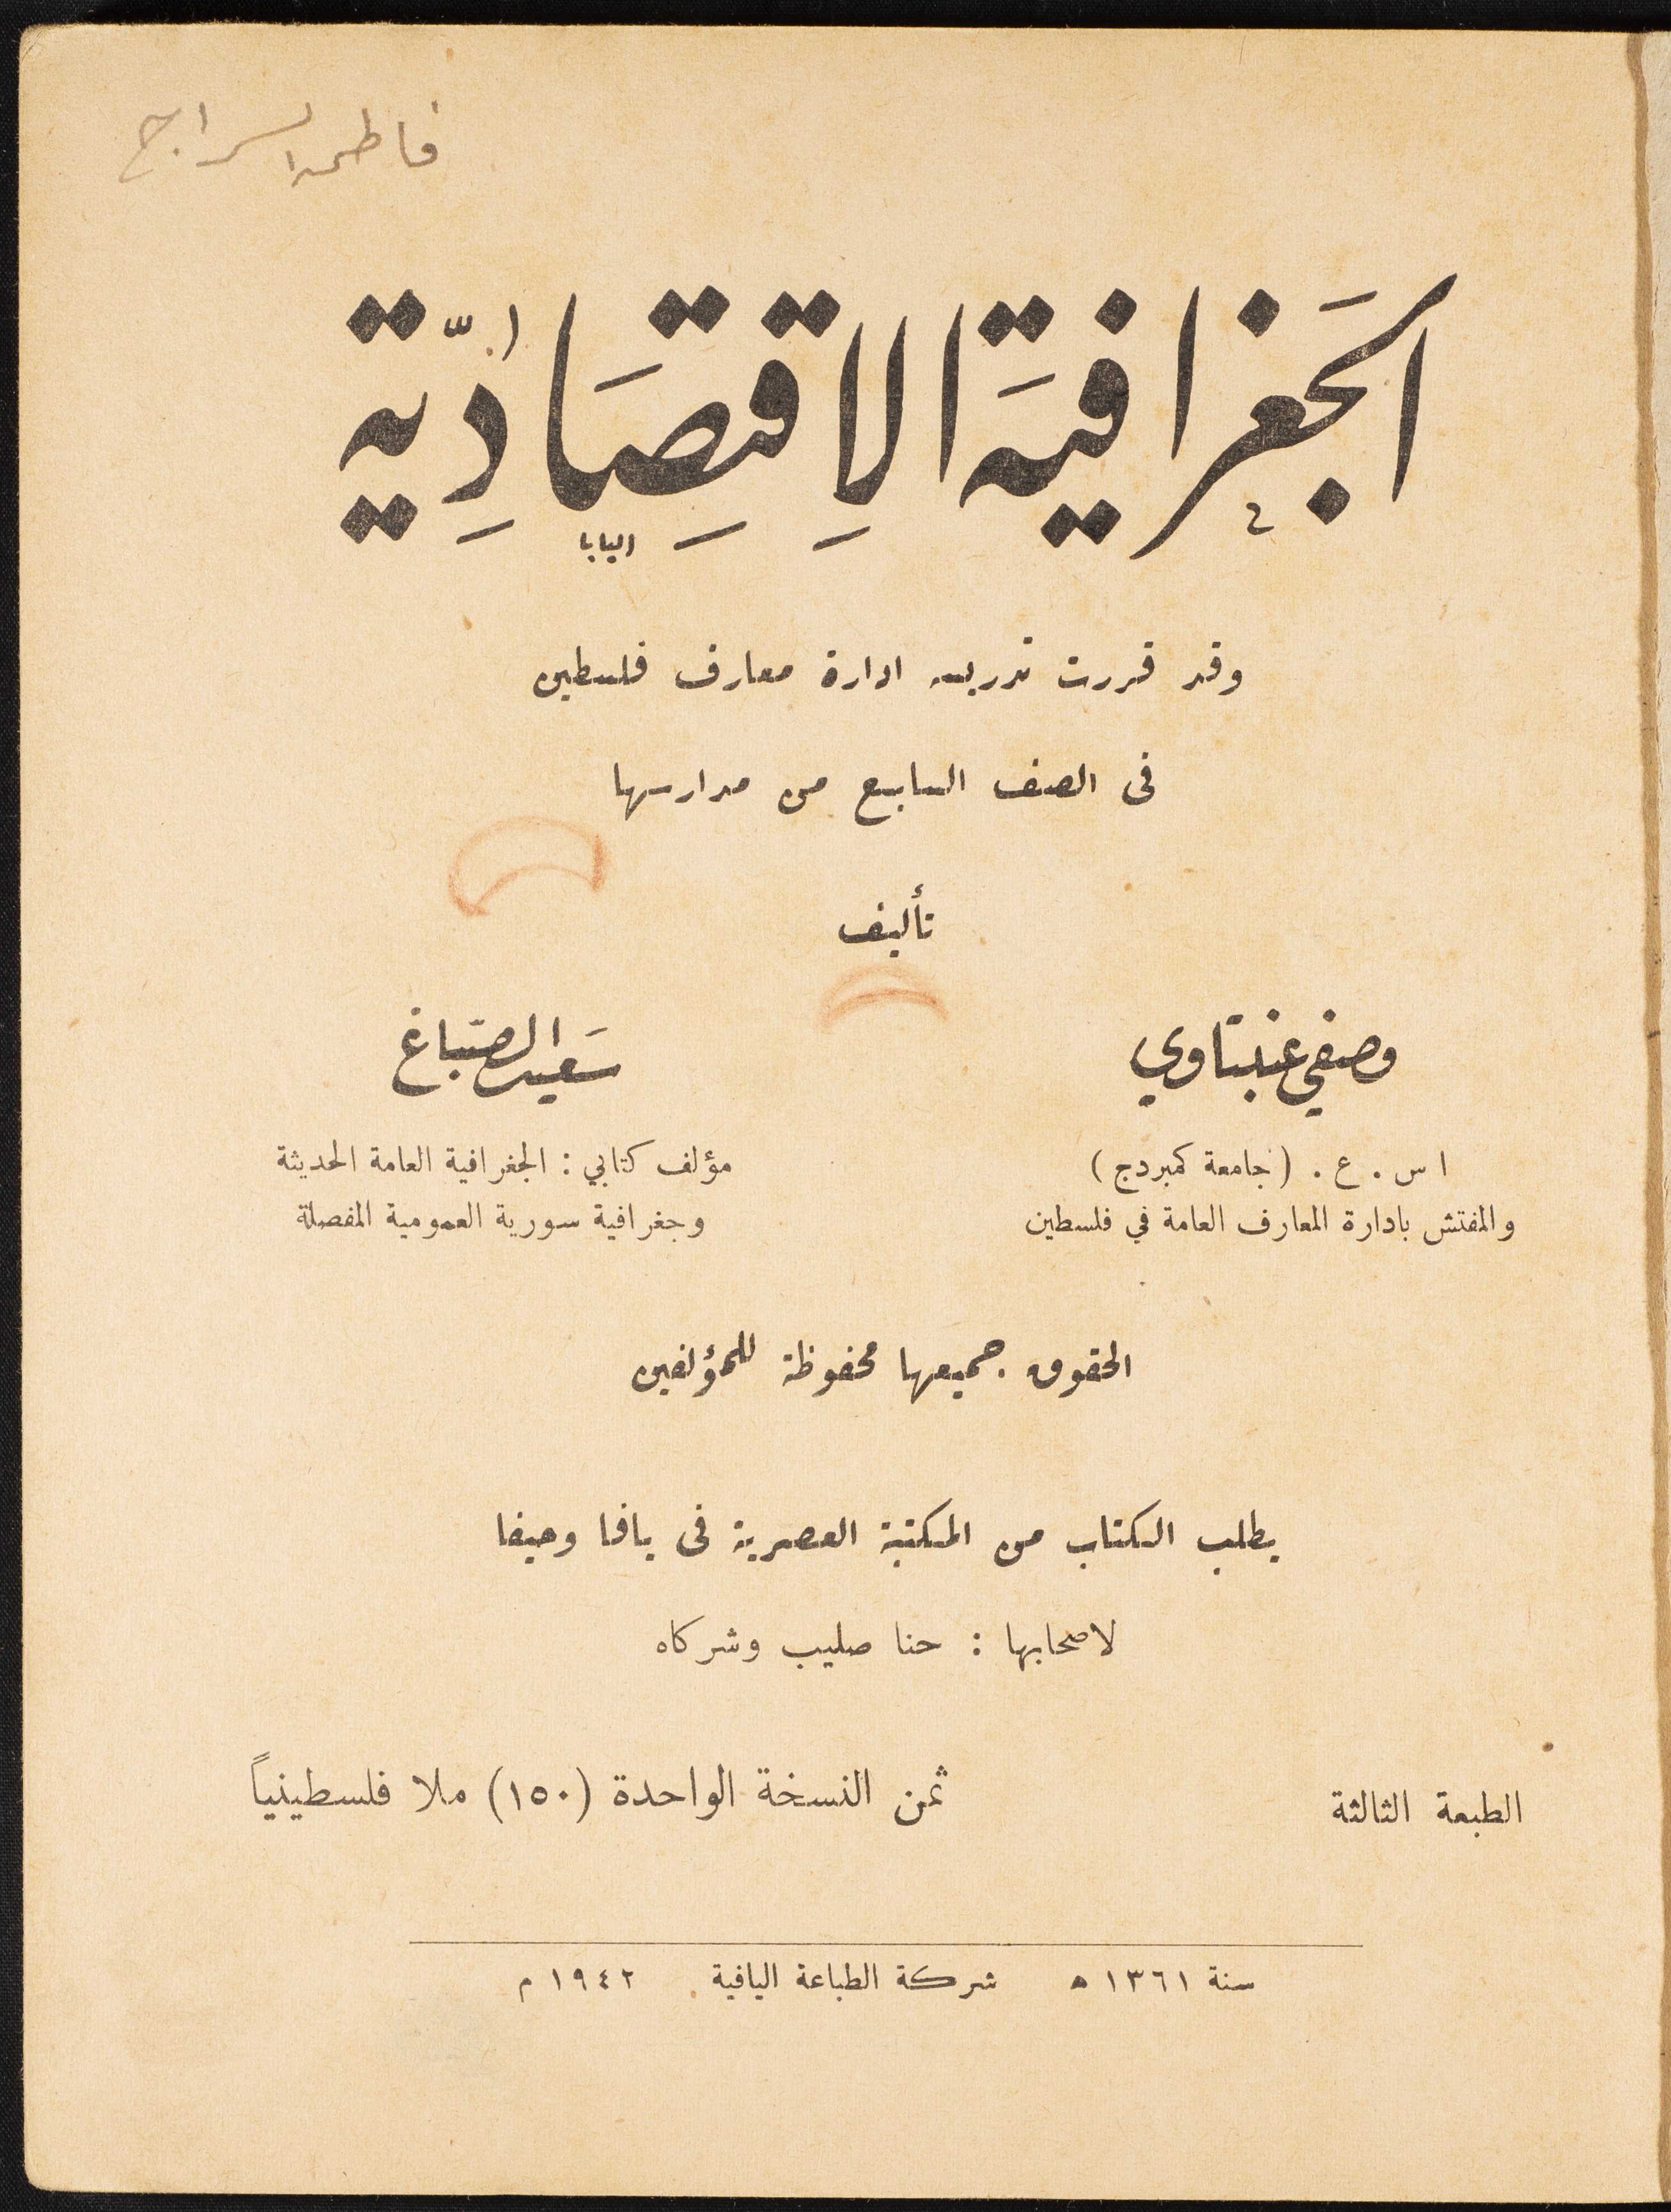 فاطمة السراج
الجغرافية الاقتصادية
البابا
وقد قررت تدريسه ادارة معارف فلسطين
فى الصف السابع من مدارسها
تأليف
وصفي عنبتاوي
ا س . ع . (جامعة كمبردج)
والمفتش بادارة المعارف العامة في فلسطين
سعيد الصباغ
مؤلف كتابي : الجغرافية العامة الحديثة
وجغرافية سورية العمومية المفصلة
الحقوق جميعها محفوظة للمؤلفين
يطلب الكتاب من المكتبة العصرية فى يافا وحيفا
لاصحابها : حنا صليب وشركاه
الطبعة الثالثة
ثمن النسخة الواحدة (١٥٠) ملا فلسطينياً
سنة ١٣٦١ ه شركة الطباعة اليافية ١٩٤٢ م